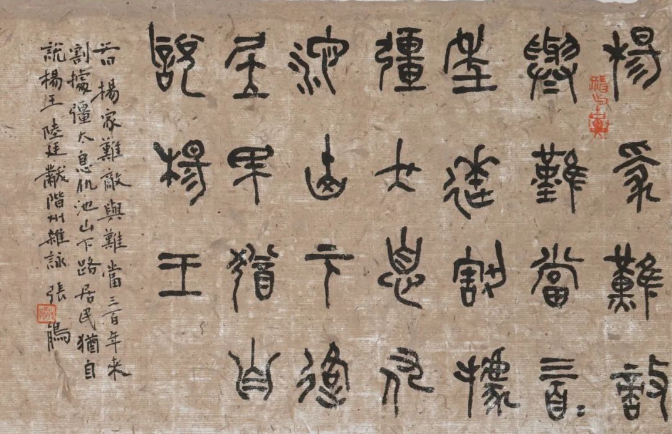 楊家難敵
與難當三百
年來割據
彊太息仇
池山下路
居民猶自
說楊王
楊家難敵與難當三百年來
割據彊太息仇池山下路居民猶自
說楊王 陸廷黻階州雜詠 張鵬